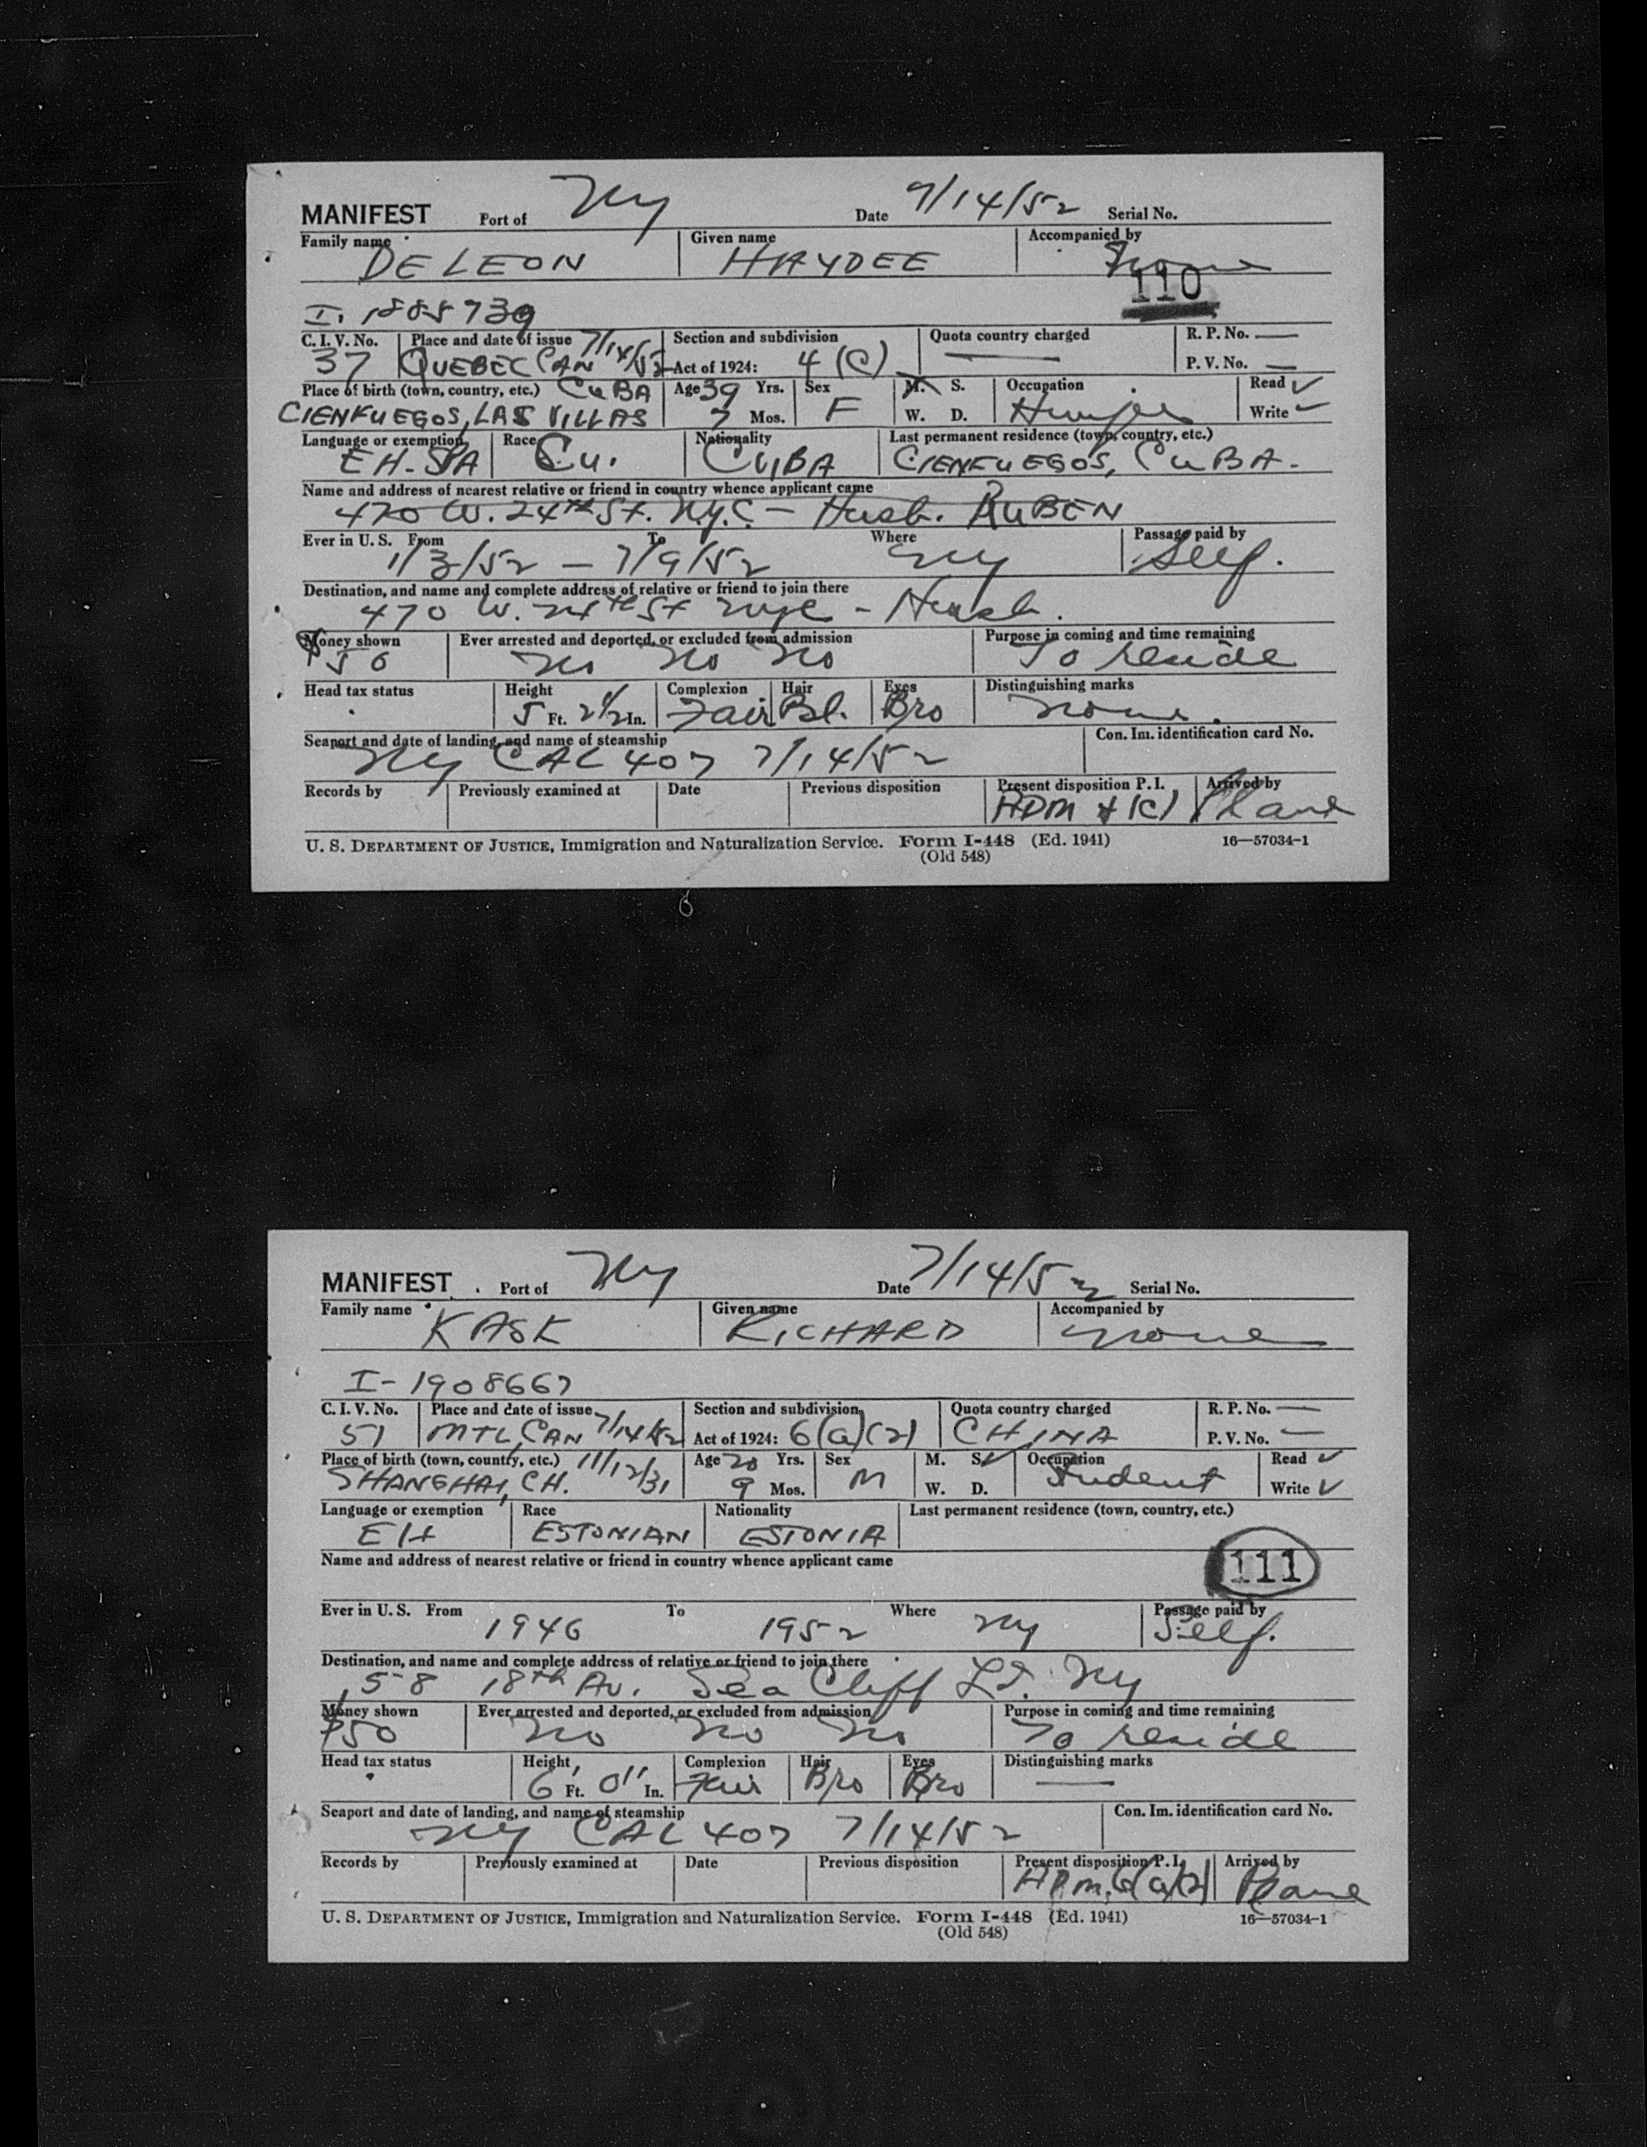 MANIFEST Port of NY Date 7/14/52 Serial No.
Family name DE LEON Given name HAYDEE Accompanied by none
110
I. 1885739
C. I. V. No. 37 Place and date of issue 7/14/52 QUEBEC CAN Section and subdivision Act of 1924: 4 (C) Quota country charged — R. P. No. — P. V. No. —
Place of birth (town, country, etc.) CUBA CIENFUEGOS, LAS VILLAS Age 39 Yrs. 7 Mos. Sex F M. S. W. D. Occupation Read ✓ Write ✓
Language or exemption EH-SPA Race Cu. Nationality CUBA Last permanent residence (town, country, etc.) CIENFUEGOS, CUBA.
Name and address of nearest relative or friend in country whence applicant came
470 W. 24th St. N.Y.C. - Husb. RUBEN
Ever in U. S. From 1/3/52 - To 7/9/52 Where NY Passage paid by Self.
Destination, and name and complete address of relative or friend to join there
470 W. 24th St NYC - Husb.
Money shown $50 Ever arrested and deported, or excluded from admission No No No Purpose in coming and time remaining To reside
Head tax status Height 5 Ft. 2 1/2 In. Complexion Fair Hair Bl. Eyes Bro Distinguishing marks none.
Seaport and date of landing, and name of steamship NY CAL 407 7/14/52 Con. Im. identification card No.
Records by Previously examined at Date Previous disposition Present disposition P. I. ADM 4 (C) Arrived by Plane
U. S. DEPARTMENT OF JUSTICE, Immigration and Naturalization Service. Form I-448 (Ed. 1941) 16—57034-1
(Old 548)
MANIFEST Port of NY Date 7/14/52 Serial No.
Family name KASK Given name RICHARD Accompanied by none
I-1908667
C. I. V. No. 51 Place and date of issue 7/14/52 MTL, CAN Section and subdivision Act of 1924: 6(a)(2) Quota country charged CHINA R. P. No. — P. V. No. —
Place of birth (town, country, etc.) 11/12/31 SHANGHAI, CH. Age 20 Yrs. 9 Mos. Sex M M. S. ✓ W. D. Occupation Student Read ✓ Write ✓
Language or exemption EH Race ESTONIAN Nationality ESTONIA Last permanent residence (town, country, etc.)
Name and address of nearest relative or friend in country whence applicant came
111
Ever in U. S. From 1946 To 1952 Where NY Passage paid by Self.
Destination, and name and complete address of relative or friend to join there
158 18th Av. Sea Cliff L.I. NY
Money shown $50 Ever arrested and deported, or excluded from admission No No No Purpose in coming and time remaining To reside
Head tax status Height 6 Ft. 0" In. Complexion Fair Hair Bro Eyes Bro Distinguishing marks —
Seaport and date of landing, and name of steamship NY CAL 407 7/14/52 Con. Im. identification card No.
Records by Previously examined at Date Previous disposition Present disposition P. I. ADM. 6(a)(2) Arrived by Plane
U. S. DEPARTMENT OF JUSTICE, Immigration and Naturalization Service. Form I-448 (Ed. 1941) 16—57034-1
(Old 548)